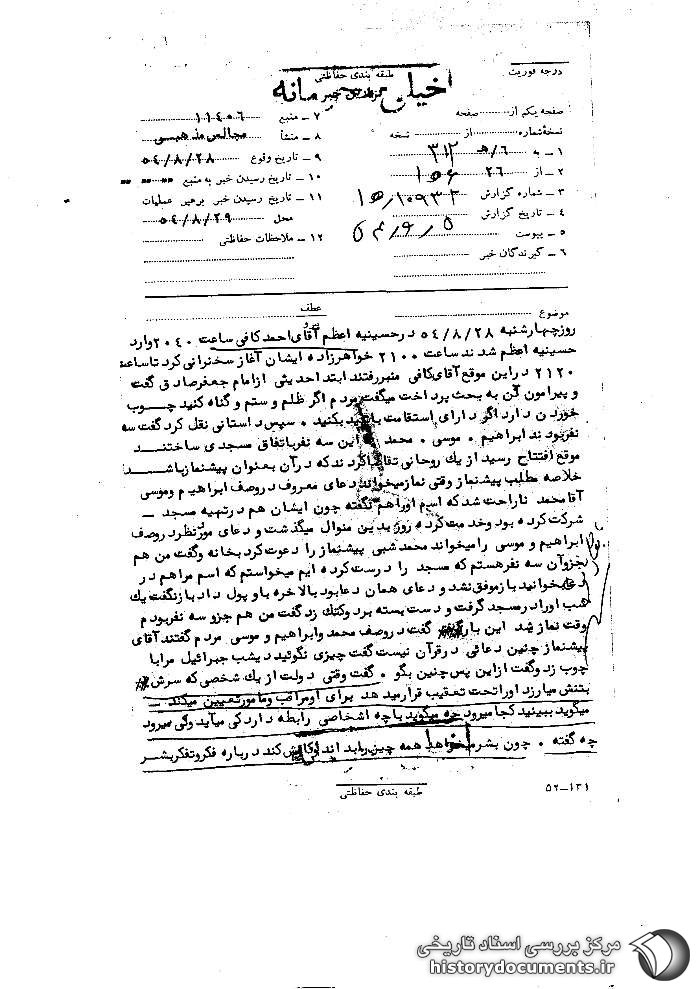 طبقه بندی حفاظتی
درجه فوریت
خیلی محرمانه
صفحه یکم از صفحه
نسخه شماره از نسخه
۱ـ به ۶/هـ ۳۱۲
۲ـ از ۲۶ ه۱۵
۳ـ شماره گزارش ۱۰۹۳۲/ه۱
۴ـ تاریخ گزارش
۵ـ پیوست
۶ـ گیرندگان خبر
۷ـ منبع ۱۱۴۰۶
۸ـ منشأ مجالس مذهبی
۹ـ تاریخ وقوع ۵۴/۸/۲۸
۱۰ـ تاریخ رسیدن خبر به منبع
۱۱ـ تاریخ رسیدن خبر برهبر عملیات
محل ۵۴/۸/۲۹
۱۲ـ ملاحظات حفاظتی
موضوع
عطف
روزچهارشنبه ۵۴/۸/۲۸ درحسینیه اعظم آقای احمدکافی ساعت ۲۰۴۰ وارد
حسینیه اعظم شدند ساعت ۲۱۰۰ خواهرزاده ایشان آغاز سخنرانی کرد تاساعت
۲۱۲۰ دراین موقع آقای کافی منبررفتند ابتدا حدیثی ازامام جعفرصادق گفت
و پیرامون آن به بحث پرداخت میگفت مردم اگر ظلم و ستم و گناه کنید چوب
خوردن دارد اگر دارای استقامت بکنید . سپس داستانی نقل کرد گفت سه
نفربودند ابراهیم . موسی . محمد این سه نفر باتفاق مسجدی ساختند
موقع افتتاح رسید از یک روحانی تقاضا کردند که درآن بعنوان پیشنماز باشد
خلاصه مطلب پیشنماز وقتی نماز میخواند دعای معروف دروصف ابراهیم وموسی
آقامحمد ناراحت شد که اسم اورا هم نگفته چون ایشان هم درتهیه مسجد ـ
شرکت کرده بود وخدمت کرده روز بدین منوال میگذشت و دعای موردنظر دروصف
ابراهیم و موسی را میخواند محمدشبی پیشنماز را دعوت کرد بخانه وگفت من هم
جزوآن سه نفرهستم که مسجد را درست کرده ایم میخواستم که اسم مراهم در
دعا بخوانید باز موفق نشد و دعای همان دعابود بالاخره باو پول داد بازنگفت یک
شب اورا درمسجد گرفت و دست بسته برد وکتک زد گفت من هم جزو سه نفر بودم
وقت نماز شد این بار گفت دروصف محمد وابراهیم و موسی مردم گفتند آقای
پیشنماز چنین دعائی درقرآن نیست گفت چیزی نگوئید دیشب جبرائیل مرا با
چوب زد وگفت ازاین پس چنین بگو . گفت وقتی دولت از یک شخصی که سرش
بتنش میارزد اورا تحت تعقیب قرار میدهد برای او مراقب ومامور تعیین میکند ـ
میگوید ببینید کجا میرود چه میگوید باچه اشخاصی رابطه دارد کی میآید وکی میرود
چه گفته . چون بشر میخواهد همه چیز را بداند کند درباره فکر و تفکر بشر
طبقه بندی حفاظتی
۵۲-۱۳۱
مرکز بررسی اسناد تاریخی
historydocuments.ir